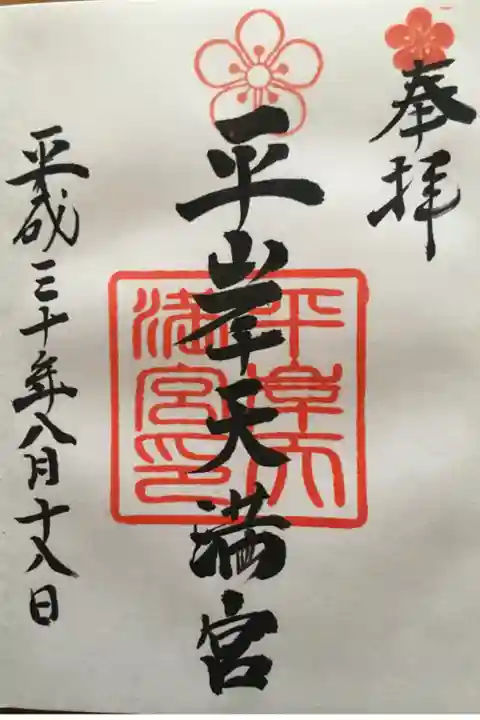 奉拝
平岸天満宮
平岸天満宮印
平成三十年八月十八日